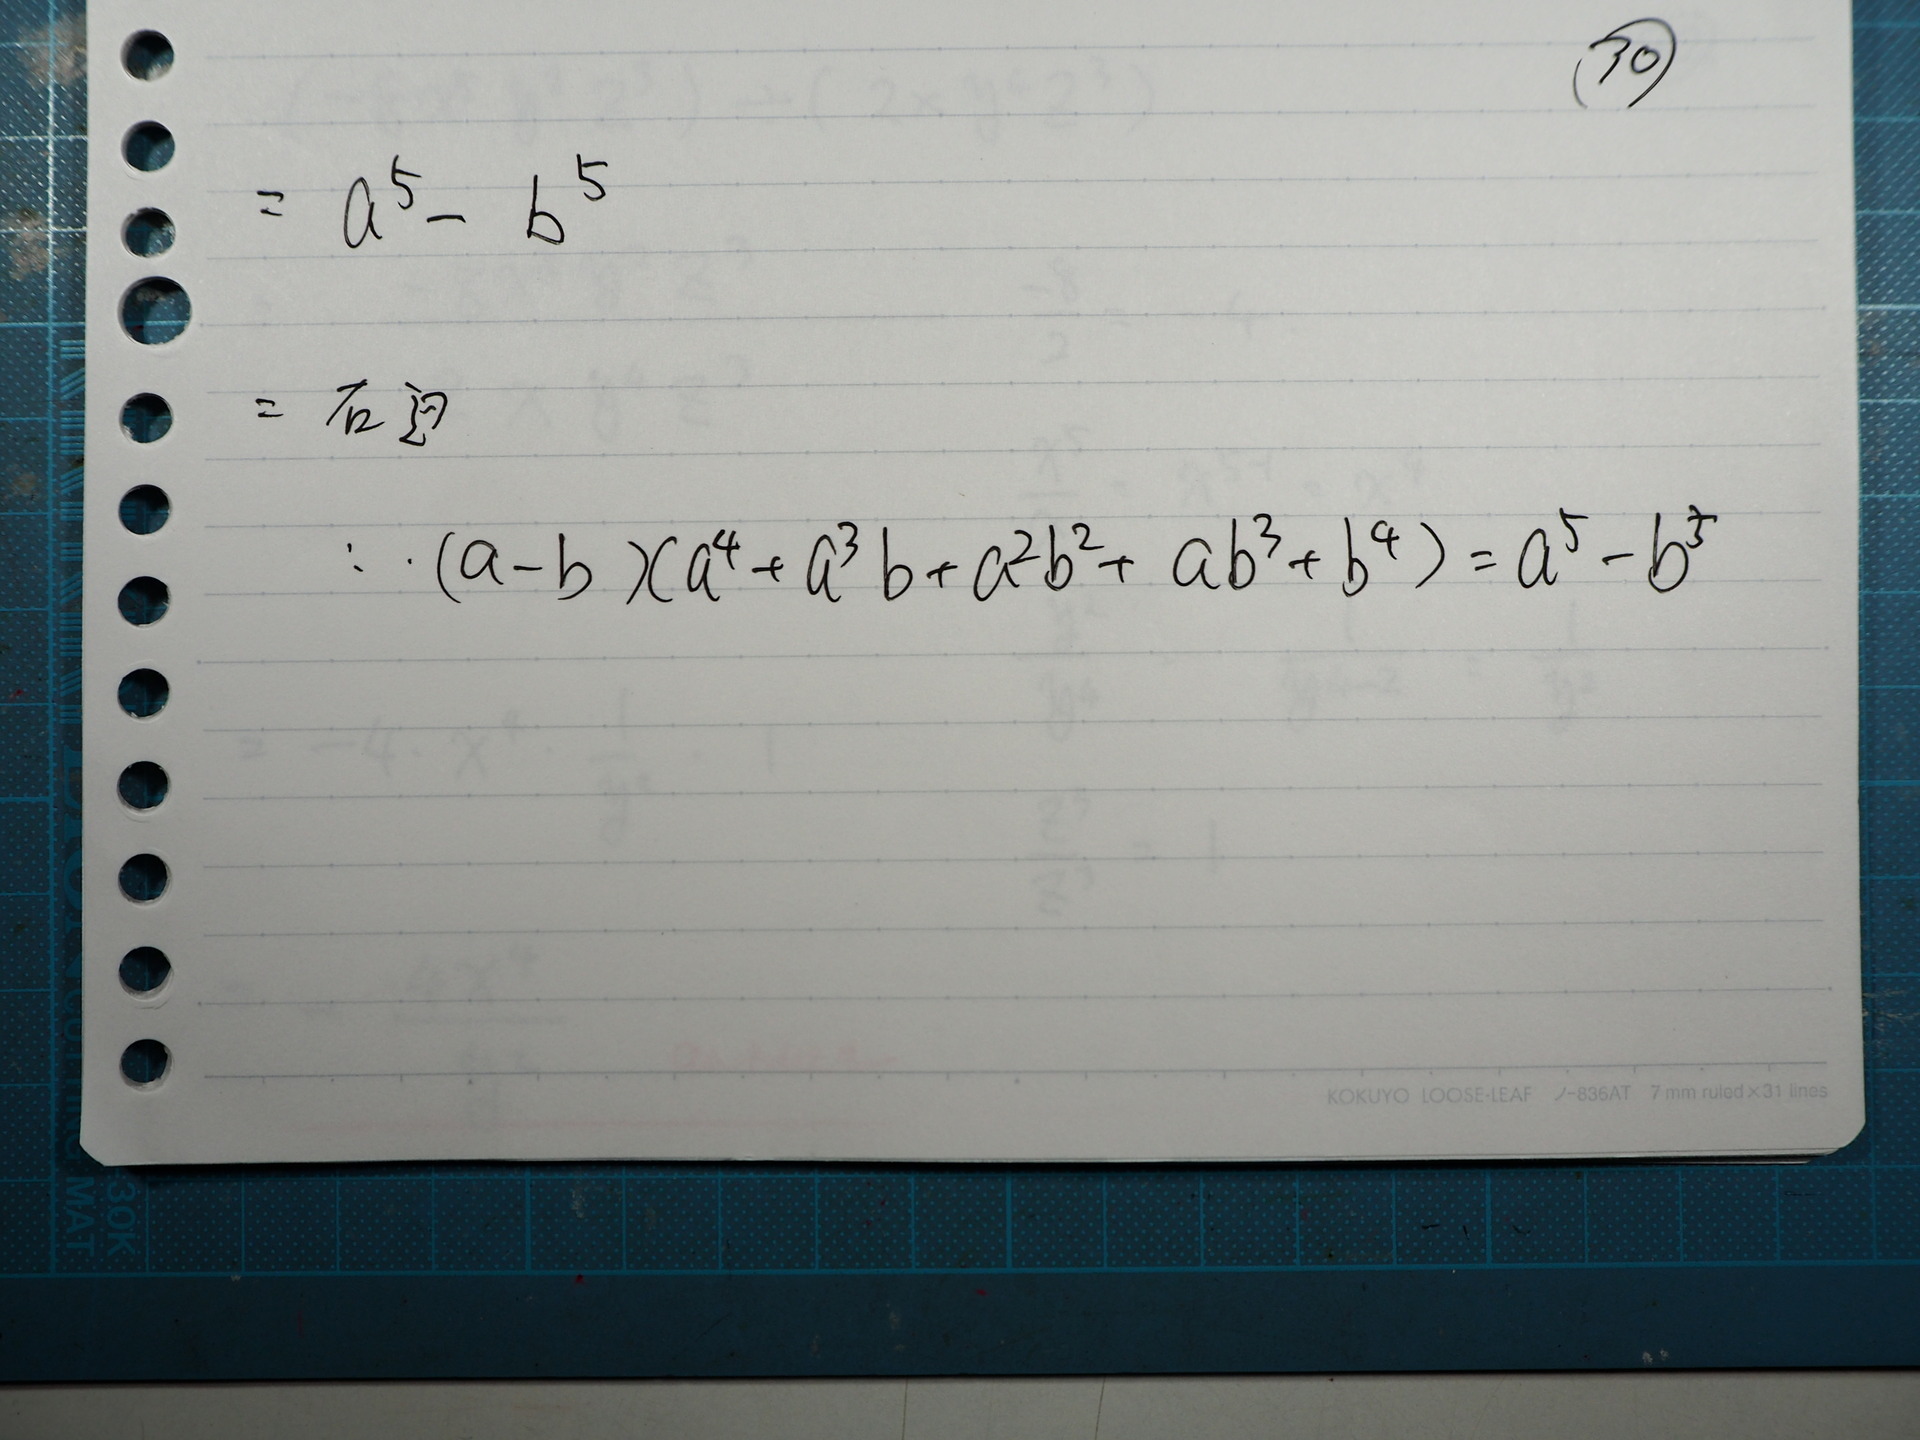 (30)
= a⁵ - b⁵
= 右辺
∴ (a-b)(a⁴+a³b+a²b²+ab³+b⁴)=a⁵-b⁵
KOKUYO LOOSE-LEAF ノ-836AT 7 mm ruled×31 lines
30K
MAT